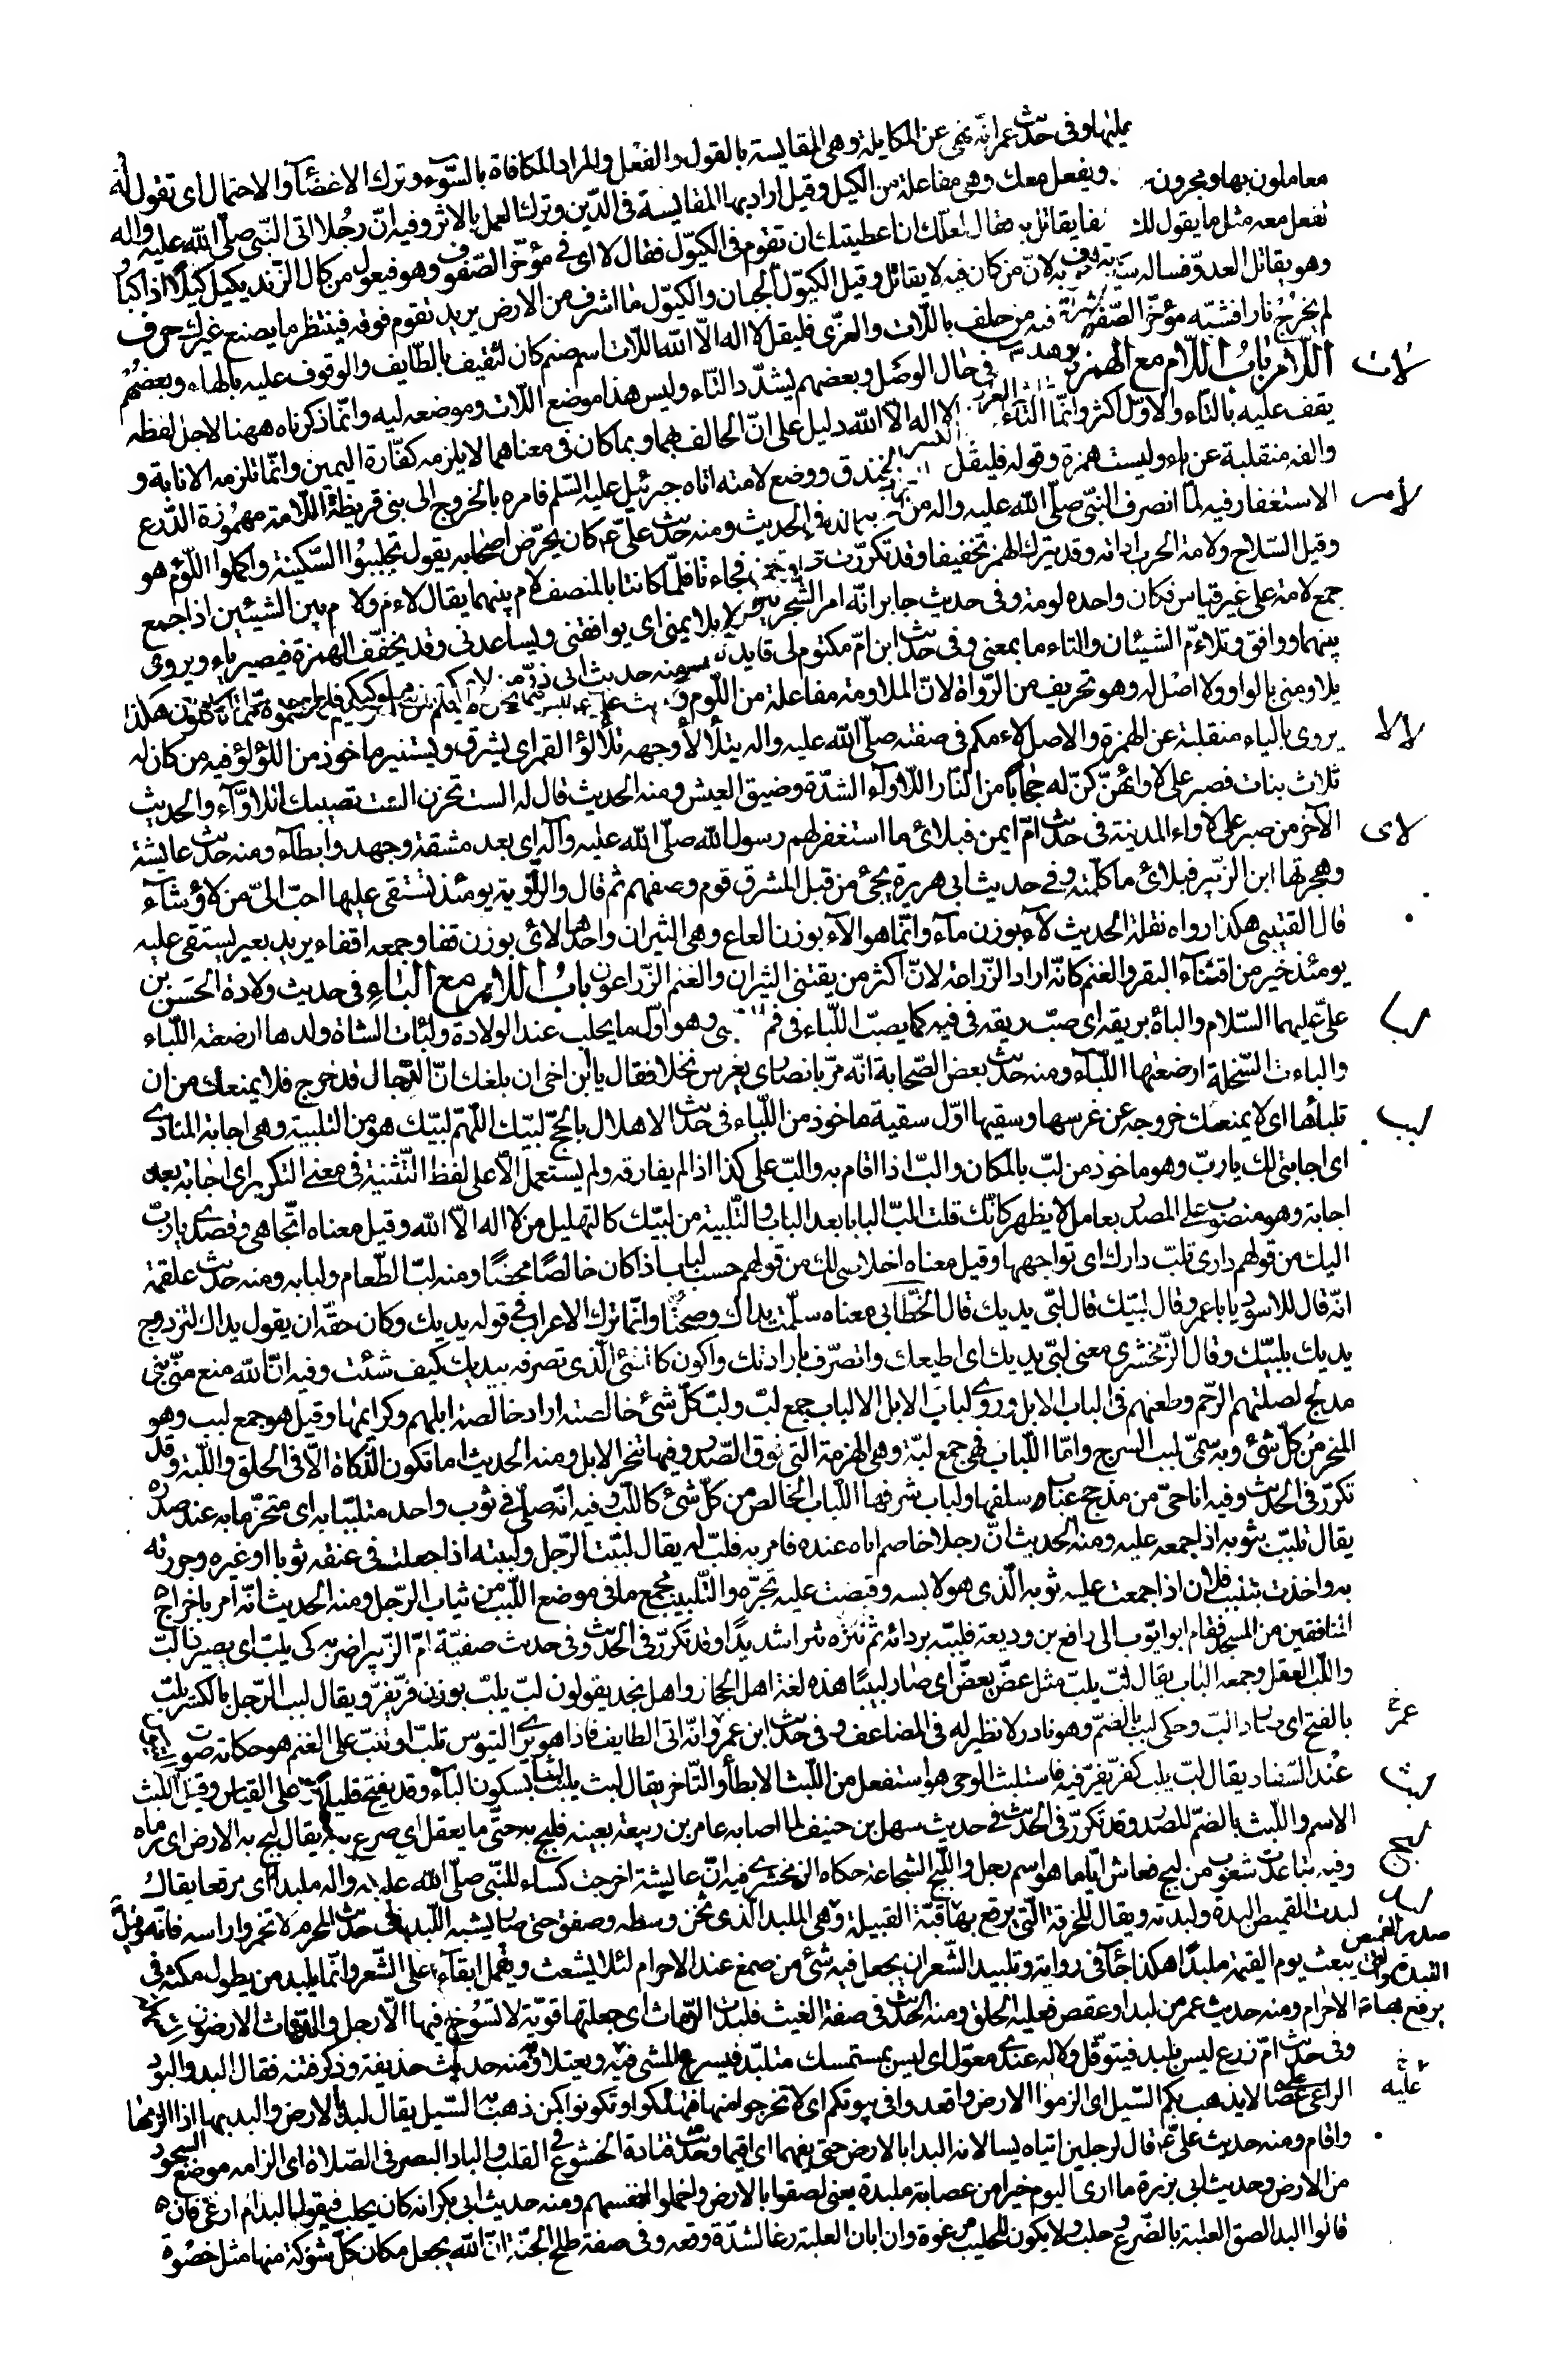 يمليها وفى حديث عمر انّه نهى عن المكايلة وهى المقايسة بالقول والفعل والمراد المكافاة بالسّوء وترك الاغضآء والاحتمال اى تقول له
معاملون بها ويجرون ويفعل معك وهى مفاعلة من الكيل وقيل اراد بها المقايسة فى الدّين وترك العمل بالاثر وفيه انّ رجلا اتى النّبى صلّى الله عليه واله
تفعل معه مثل ما يقول لك
وهو يقاتل العدوّ فساله سيفا يقاتل به فقال لعلّك ان اعطيتك ان تقوم فى الكيّول فقال لا اى فى مؤخّر الصّفوف وهو فيعول من كال الزّند يكيل كيلًا اذا كبا
لم يخرج نارا فشبّه مؤخّر الصّفوف به لانّ من كان فيه لا يقاتل وقيل الكيّول الجبان والكيّول ما اشرف من الارض يريد تقوم فوقه فينتظر ما يصنع غيرك حرف
لات
اللّام باب اللّام مع الهمزة فيه من حلف باللّات والعزّى فليقل لا اله الّا الله اللّات اسم صنم كان لثقيف بالطّايف والوقوف عليه بالهاء وبعضهم
يقف عليه بالتاء والاوّل اكثر وانّما التاء فى حال الوصل وبعضهم يشدّد التاء وليس هذا موضع اللّات وموضعه ليه وانّما ذكرناه ههنا لاجل لفظه
والفه منقلبة عن ياء وليست همزة وقوله فليقل لا اله الّا الله دليل على انّ الحالف بهما وبما كان فى معناهما لا يلزمه كفّارة اليمين وانّما تلزمه الانابة و
لأم
الاستغفار فيه لمّا انصرف النّبى صلّى الله عليه واله من الخندق ووضع لامته اتاه جبرئيل عليه السّلم فامره بالخروج الى بنى قريظة اللّامة مهموزة الدّرع
وقيل السّلاح ولامة الحرب اداته وقد يترك الهمز تخفيفا وقد تكرّرت فى الحديث ومنه حديث علىّ كان يحرّض اصحابه يقول تجلببوا السّكينة واكملوا اللّؤم هو
جمع لامة على غير قياس فكان واحده لومة وفى حديث جابر انّه امر الشجرتين فجاءتا فلمّا كانتا بالمنصف لام بينهما يقال لاءم ولام بين الشيئين اذا جمع
بينهما ووافق وتلاءم الشيئان والتاءما بمعنى وفى حديث ابن امّ مكتوم لى قايد لا يلايمنى اى يوافقنى ويساعدنى وقد يخفّف الهمزة فيصير ياء ويروى
يلاومنى بالواو ولا اصل له وهو تحريف من الرّواة لانّ الملاومة مفاعلة من اللّوم ومنه حديث ابى ذر من لايمكم من مملوكيكم فاطعموه ممّا تاكلون هكذا
لألأ
يروى بالياء منقلبة عن الهمزة والاصل لاءمكم فى صفته صلّى الله عليه واله يتلألأ وجهه تلألؤ القمر اى يشرق ويستنير ماخوذ من اللؤلؤ فيه من كان له
ثلاث بنات فصبر على لاوائهنّ كنّ له حجابًا من النّار اللّاوآء الشدّة وضيق العيش ومنه الحديث قال له الست تحزن الست تصيبك اللاوآء والحديث
لاى
الآخر من صبر على لاواء المدينة فى حديث امّ ايمن فبلأى ما استغفر لهم رسول الله صلّى الله عليه وآله اى بعد مشقة وجهد وابطآء ومنه حديث عايشة
وهجرتها ابن الزّبير فبلأى ما كلّمته وفى حديث ابى هريرة يجئ من قبل المشرق قوم وصفهم ثم قال والرّاوية يومئذ يستقى عليها احبّ الىّ من لاء وشآء
قال القتيبى هكذا رواه نقلة الحديث لآء بوزن مآء وانّما هو الآء بوزن العاع وهى الثيران واحدها لأى بوزن قفا وجمعه اقفاء يريد بعير يستقى عليه
يومئذ خير من اقتنآء البقر والغنم كانّه اراد الزّراعة لانّ اكثر من يقتنى الثيران والغنم الزّراعون باب اللّام مع الباء فى حديث ولادة الحسن بن
لبا
علىّ عليهما السّلام والباه بريقه اى صبّ ريقه فى فيه كما يصبّ اللّباء فى فم الصبى وهو اوّل ما يحلب عند الولادة ولبأت الشاة ولدها ارضعته اللّباء
والباءت السّخلة ارضعتها اللّباء ومنه حديث بعض الصّحابة انّه مرّ بانصارى يغرس نخلا فقال يا بن اخى ان بلغك انّ الدّجال قد خرج فلا يمنعك من ان
لبب
تلبأها اى لا يمنعك خروجه عن غرسها وسقيها اوّل سقية ماخوذ من اللّباء فى حديث الاهلال بالحجّ لبّيك اللّهمّ لبّيك هو من التلبية وهى اجابة المنادى
اى اجابتى لك يا ربّ وهو ماخوذ من لبّ بالمكان والبّ اذا اقام به والبّ على كذا اذا لم يفارقه ولم يستعمل الّا على لفظ التّثنية فى معنى التكرير اى اجابة بعد
اجابة وهو منصوب على المصدر بعامل لا يظهر كانّك قلت البّ البابا بعد الباب والتّلبية من لبّيك كالتهليل من لا اله الّا الله وقيل معناه اتّجاهى وقصدى يا ربّ
اليك من قولهم دارى تلبّ دارك اى تواجهها وقيل معناه اخلاصى لك من قولهم حسب لباب اذا كان خالصًا محضًا ومنه لبّ الطّعام ولبابه ومنه حديث علقمة
انّه قال للاسود يا با عمرو قال لبّيك قال لبّى يديك قال الخطّابى معناه سلمت يداك وصحّتا وانّما ترك الاعراب فى قوله يديك وكان حقّه ان يقول يداك لتزدوج
يديك بلبّيك وقال الزّمخشرى معنى لبّى يديك اى اطيعك واتصرّف بارادتك واكون كالشئ الّذى تصرفه بيديك كيف شئت وفيه انّ الله منع منّى بنى
مدلج لصلتهم الرّحم وطعنهم فى الباب الابل وروى لباب الابل الالباب جمع لبّ ولبّ كلّ شئ خالصته اراد خالصة ابلهم وكرائمها وقيل هو جمع لبب وهو
المنحر من كلّ شئ وبه سمّى لبب السرج وامّا اللّباب فهى جمع لبّة وهى الهزمة التى فوق الصّدر وفيها تنحر الابل ومنه الحديث اما تكون الذّكاة الّا فى الحلق واللّبة وقد
تكرّر فى الحديث وفيه انا حىّ من مذحج عباب سلفها ولباب شرفها اللّباب الخالص من كلّ شئ كاللّب وفيه انّه صلّى فى ثوب واحد متلبّبا به اى متحزّما به عند صدره
يقال تلبّب بثوبه اذا جمعه عليه ومنه الحديث انّ رجلا خاصم اباه عنده فامر به فلبّ له يقال لببت الرّجل ولبّبته اذا جعلت فى عنقه ثوبا او غيره وجررته
به واخذت بتلبيب فلان اذا جمعت عليه ثوبه الّذى هو لابسه وقبضت عليه تجرّه والتّلبيب مجمع ما فى موضع اللّبب من ثياب الرّجل ومنه الحديث انّه امر باخراج
المنافقين من المسجد فقام ابو ايّوب الى رافع بن وديعة فلبّبه بردائه ثم نتره نترا شديدًا وقد تكرّر فى الحديث وفى حديث صفيّة امّ الزّبير اضربه كى يلبّ اى يصير ذا لبّ
واللّب العقل وجمعه الباب يقال لبّ يلبّ مثل عضّ يعضّ اى صار لبيبًا هذه لغة اهل الحجاز واهل نجد يقولون لبّ يلبّ بوزن فرّ يفرّ ويقال لبب الرّجل بالكسر يلبّ
عمر خ
بالفتح اى صار ذا لبّ وحكى لبب بالضمّ وهو نادر لا نظير له فى المضاعف وفى حديث ابن عمرو انّه اتى الطايف فاذا هو يرى التيوس تلبّ او تنبّ على الغنم هو حكاية صوت
لبث
عند السّفاد يقال لبّ يلبّ كفرّ يفرّ فيه فاستلبث الوحى هو استفعل من اللّبث الابطأ والتّاخر يقال لبث يلبث لبثا بسكون الباء وقد يفتح قليلا على القياس وقيل اللّبث
لبج
الاسم واللّبث بالضمّ المصدر وقد تكرّر فى الحديث فى حديث سهل بن حنيف لما اصابه عامر بن ربيعة بعينه فلبج به حتّى ما يعقل اى صرع به يقال لبج به الارض اى رماه
وفيه تباعدت شعوب من لبج فعاش ايّاما هو اسم رجل واللّبج الشجاعة حكاه الزمخشرى فيه انّ عايشة اخرجت كساء للنّبى صلّى الله عليه واله ملبدا اى مرقعا يقال
لبد
لبدت القميص البده ولبدته ويقال للخرقة التّى يرقع بها قبّة القبيلة وهى الملبد الّذى ثخن وسطه وصفق حتى صار يشبه اللّبد وفى حديث المحرم لا تخمروا راسه فانّه
صدر القميص
القبيدة والتى
يرقع بها
يبعث يوم القيمة ملبدًا هكذا جآء فى رواية وتلبيد الشّعر ان يجعل فيه شئ من صمغ عند الاحرام لئلا يشعث ويقمل ابقآء على الشّعر وانّما يلبد من يطول مكثه فى
الاحرام ومنه حديث عمر من لبد او عقص فعليه الحلق ومنه الحديث فى صفة الغيث فلبدت الدّماث اى جعلتها قويّة لا تسوخ فيها الارجل والدّماث الارضون
وفى حديث امّ زرع ليس بلبد فيتوقّل ولا له عندى معوّل اى ليس بمستمسك متلبّد فيسرع المشى فيه ويعتلا ومنه حديث حذيفة وذكر فتنة فقال البدوا لبود
عليه
الراعى على عصاه لا يذهب بكم السّيل اى الزموا الارض واقعدوا فى بيوتكم اى لا تخرجوا منها فتهلكوا وتكونوا كمن ذهب به السّيل يقال لبد بالارض والبد بها اذا لزمها
واقام ومنه حديث علىّ قال لرجلين اتياه يسالانه البدا بالارض حتى تفهما اى اقيما وحديث قتادة الخشوع فى القلب والباد البصر فى الصّلاة اى الزامه موضع السجود
من الارض وحديث ابى برزة ما ارى اليوم خيرا من عصابة ملبدة يعنى لصقوا بالارض واخملوا انفسهم ومنه حديث ابى بكر انه كان يحلب فيقول البد ام ارغى فان
قالوا البد الصق العلبة بالضّرع وحلب ولا يكون للحليب رغوة وان ابان العلبة رغا لشدّة وقعه وفى صفة طلح الجنّة انّ الله يجعل مكان كلّ شوكة منها مثل خصوة